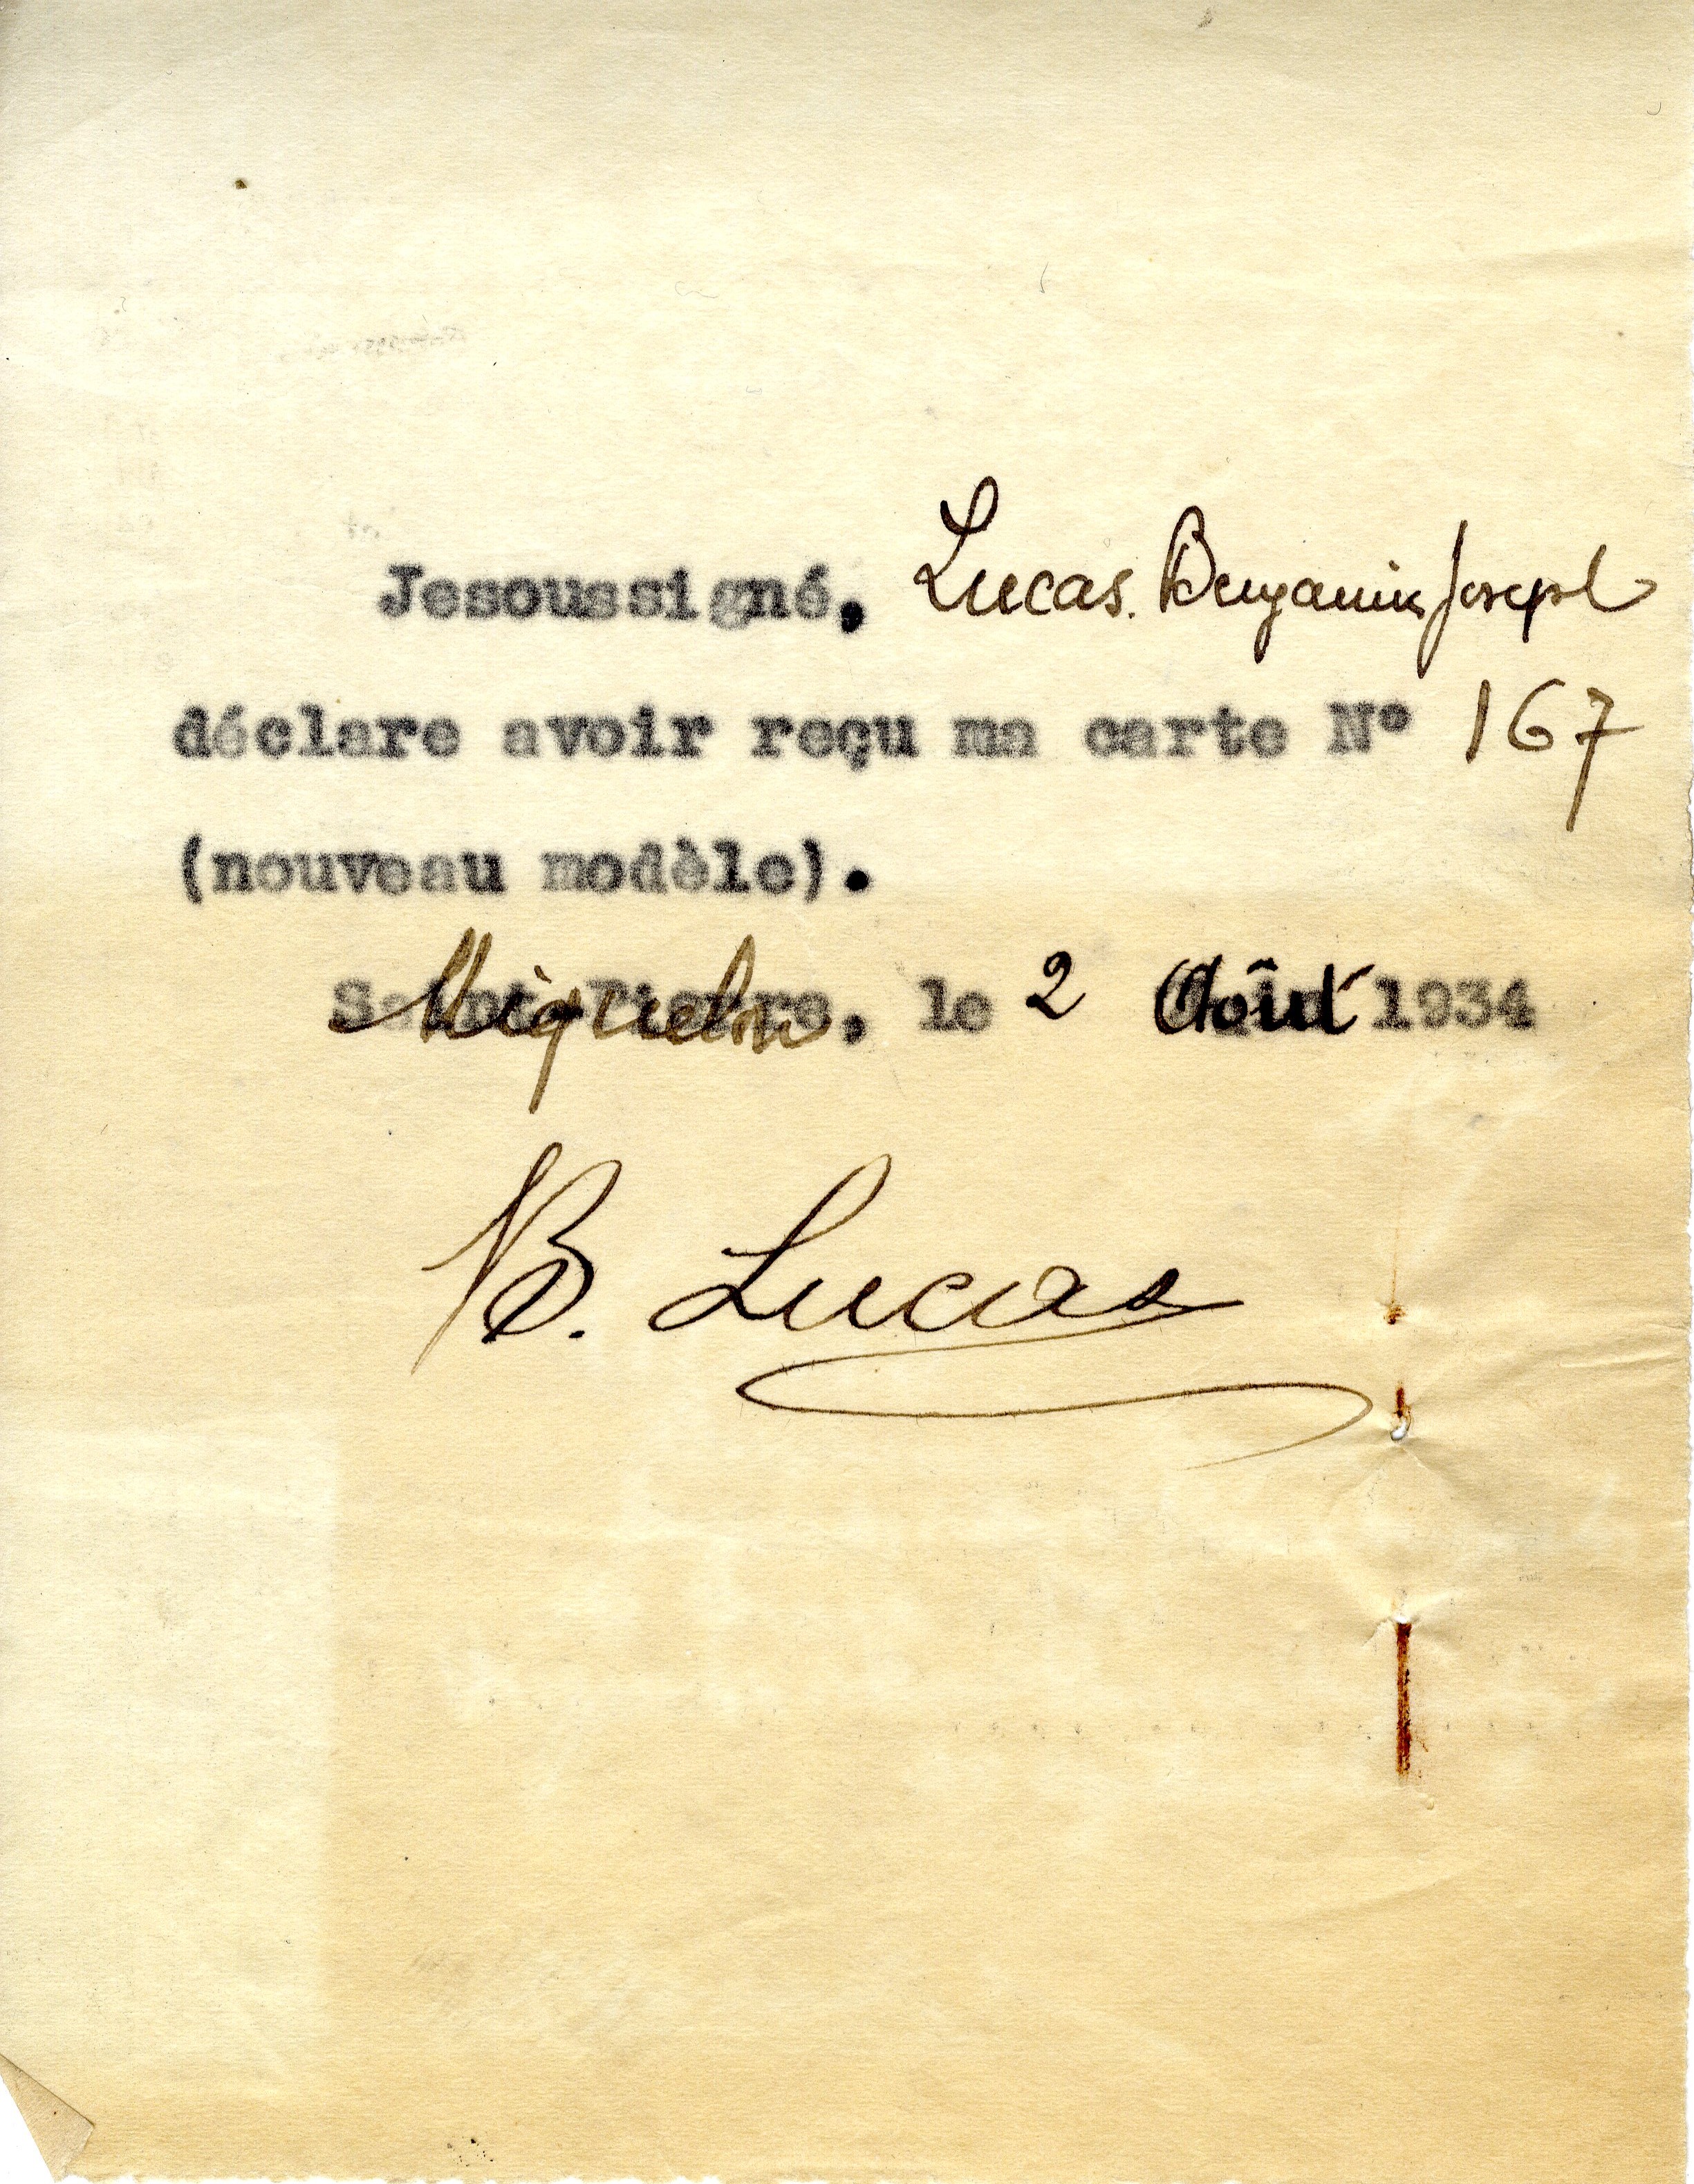 Jesoussigné, Lucas. Benjamin Joseph
déclare avoir reçu ma carte N° 167
(nouveau modèle).
Miquelon, le 2 Août 1934
B. Lucas